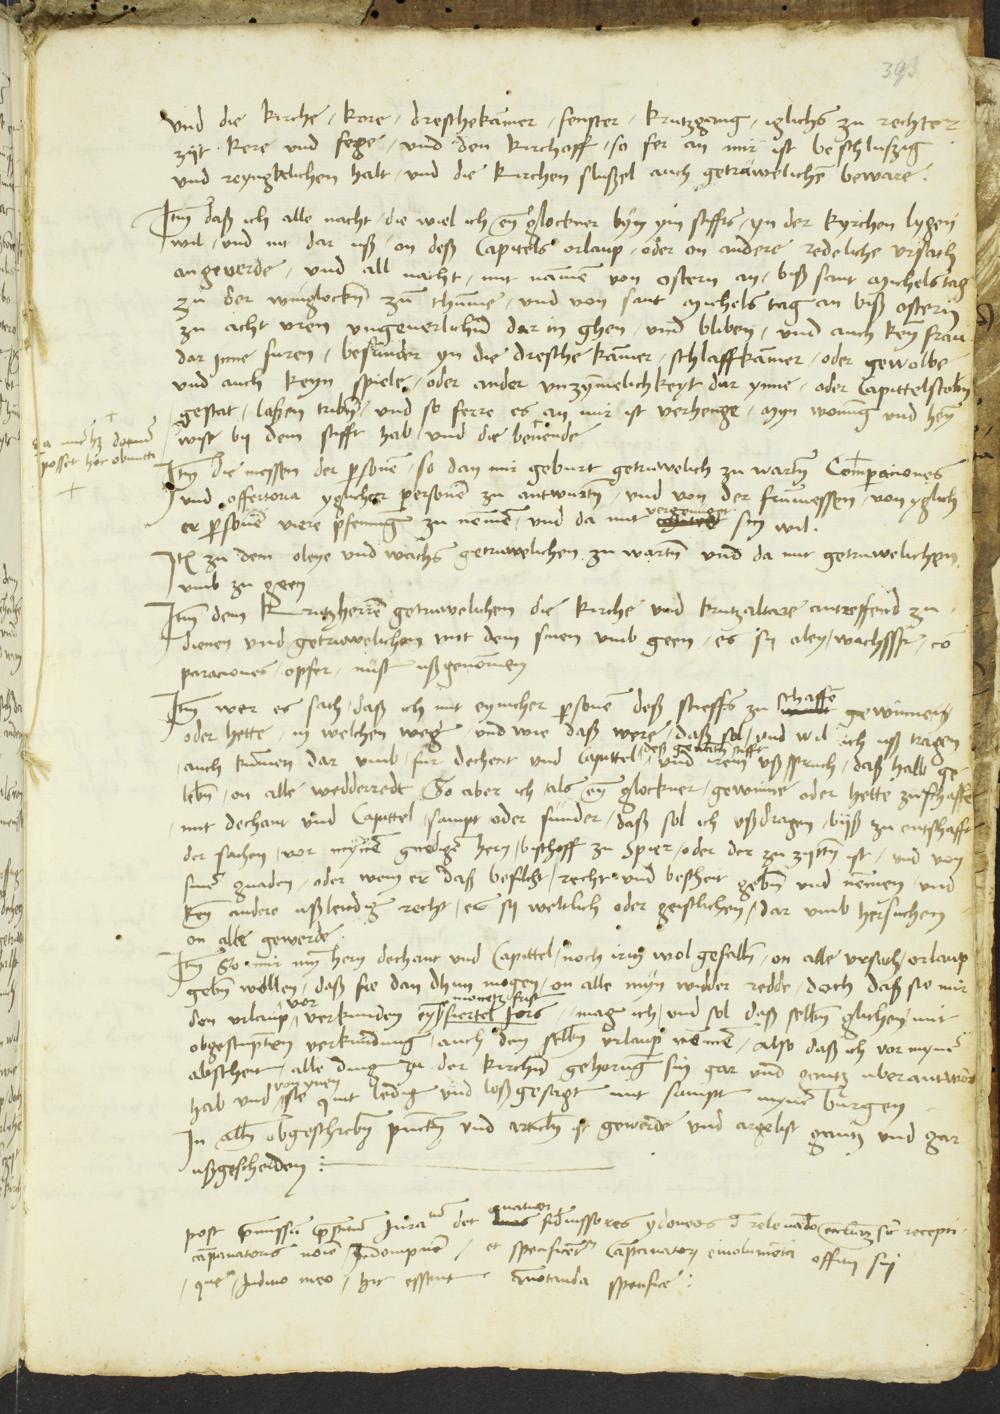 393
vnd die kirche / kore / dreschekamer / fenster / krutzgang / iglichs zu rechter
zyt kere vnd fege / vnd den kirchoff / so fer an mir ist beschlußig
vnd reyngklichen halt / vnd die kirchen slußel auch getruwelichen beware.
Item daß ich alle nacht / die wiel ich eyn glockner byn ym stiffts / yn der kyrchen lygen
wil / vnd nit dar uß / on deß Capittels orlaup / oder on andere redeliche vrsach
angeuerde / vnd all nacht / mit namen von ostern an / biß sant Michels tag
zu der winglockn zu thume / vnd von sant Michels tag an biß ostern
zu acht vren vngeuerlichen dar in ghen / vnd bliben / vnd auch keyn frau
dar Inne furen / besunder yn die dresche kamer / schlaffkamer / oder gewolbe
vnd auch keyn spiele / oder ander vnzymelichkeyt dar ynne / oder Capittelstobn
gestat / laßen tribn / vnd so ferre es an mir ist verhenge / myn wonung vnd hey
wist by dem stifft hab / vnd die
posset hoc
Item die messen der personen / so dan mir geburt getruwelich zu wartn Comperaciones
vnd offertoria yglicher personen zu antwurtn / vnd von der frumessen / von yglich
er personen viere pfennig zu nemen / vnd da mit vergenuger syn wil.
Item zu dem oleye vnd wachs getruwelichen zu wartn vnd da mit getruwelichen
vmb zu geen
Item dem Krutzherren getruwelichen die kirche vnd krutzaltare antreffend zu
dienen vnd getruwelichen mit dem sinen vmb geen / es sy oley / wachsß / co
paraciones / opfer / nust ußgenomen
Item wer es sach / daß ich mit eynicher personen deß stieffts zu schaffen gewinnen
oder hette / in welchen weg / vnd wie daß were / daß sol / vnd wil ich uß tragen
auch kumen dar vmb / fur dechent vnd Capittel / deß genanten stifft vnd irem ußspruch / daß halb ge
lebn / on alle wedderredt So aber ich / als eyn glockner / gewinne oder hette zuschaffe
mit dechant vnd Capittel / sampt oder sunder / daß sol ich ußdragen / byß zu entschafft
der sachen / vor mynem gnedigen hern / bischoff zu Spier / oder der zu zyten ist / vnd von
siner gnaden / oder wem er daß befilcht / recht vnd bescheit gebn vnd nemen / vnd
keyn andere ußlendig recht / es sy weltlich oder geistlichen / dar vmb hersuchen
on alle geuerde
Item So mir myn hern dechant vnd Capittel / noch irem wol gefalln / on alle vrsach / orlaup
gebn wollen / daß sie dan dhun mogen / on alle myn widder redde / doch daß sie mir
den vrlaup vor verkunden eyn monetz frist fiertel Jors / mag ich / vnd sol daß selbn glichen / mit
obgestimpten verkundung / auch den selbn vrlaup nemen / also daß ich vor myner
abscheit / alle ding zu der kirchen gehorung sin gar vnd gantz uberantwort
hab vnd von ynen quit ledig vnd loßgesagt mit sampt myne burgen
In alln obgeschrebn puncktn vnd articln ist geuerde vnd argelist gantz vnd gar
ußgescheiden :
post premissum prestitum Juramentum det quatuor fideiussores ydoneos de releuando
campanatoris nomine Indempnem / et specificentur Campanatori emolumenta officij sui
que Judicio meo / hic essent annotanda specifice :